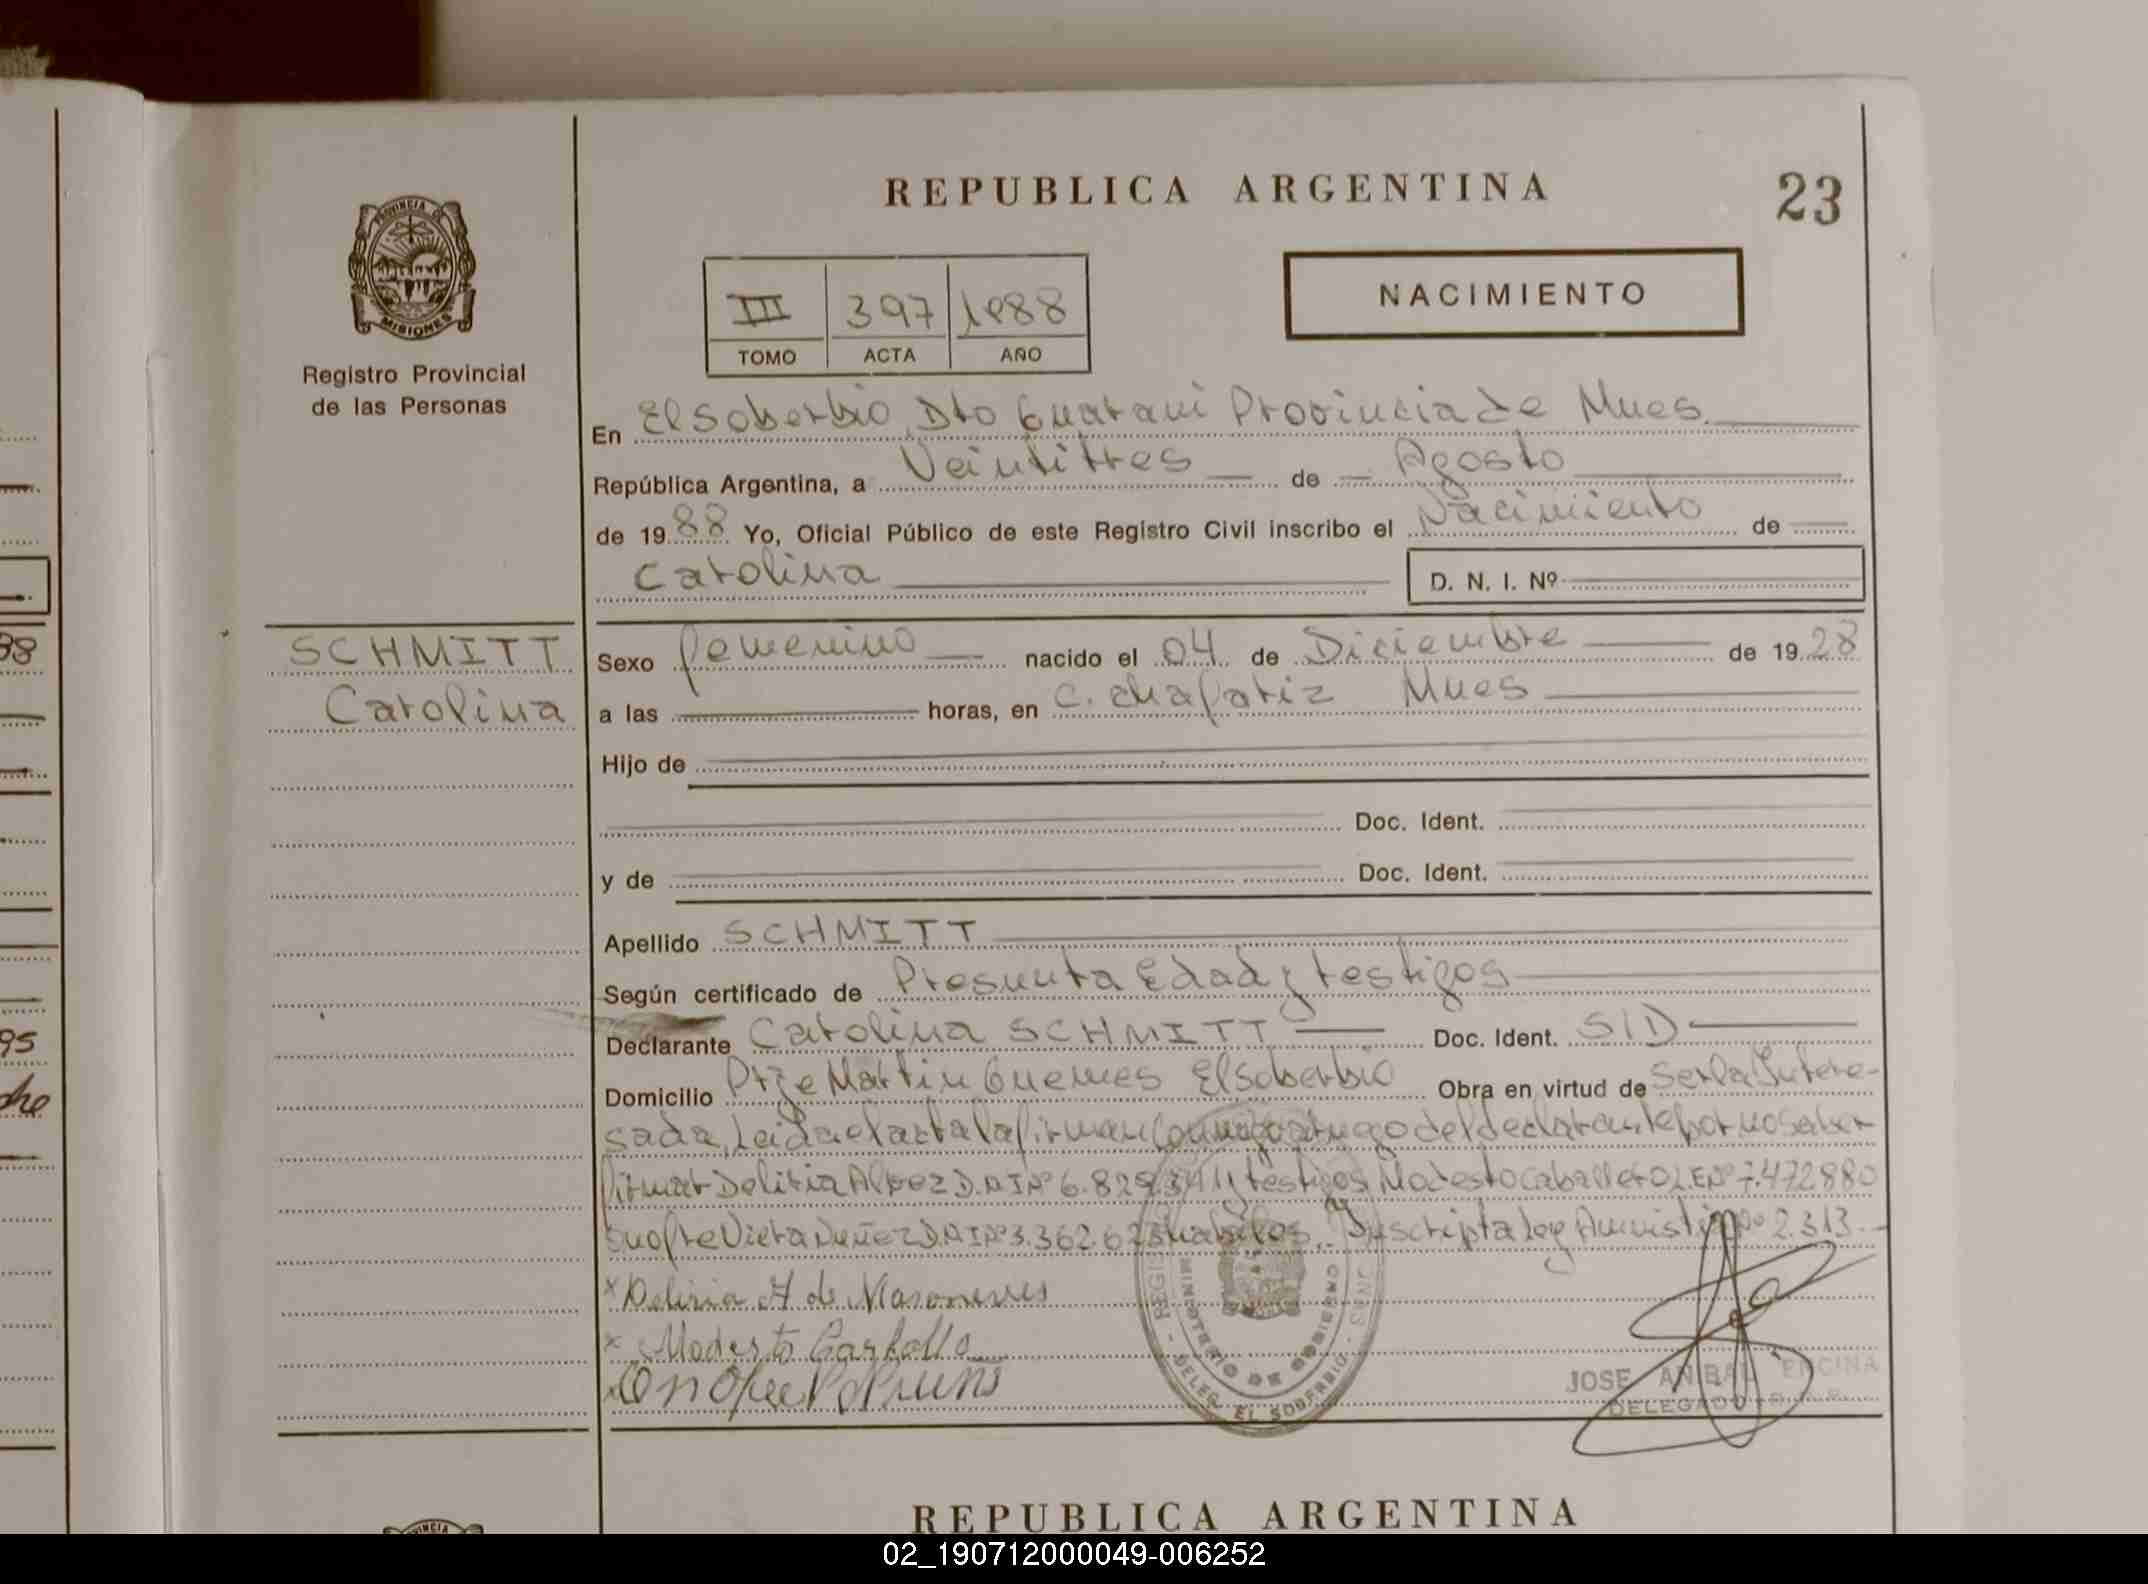 REPUBLICA ARGENTINA
23
PROVINCIA DE
MISIONES
Registro Provincial
de las Personas
III 397 1988
TOMO ACTA AÑO
NACIMIENTO
En El Soberbio, Dto Guarani Provincia de Mnes.
República Argentina, a Veintitres de Agosto
de 1988 Yo, Oficial Público de este Registro Civil inscribo el Nacimiento de
Carolina D. N. I. Nº
SCHMITT
Carolina
Sexo femenino nacido el 04 de Diciembre de 1928
a las horas, en C. Chafariz Mnes
Hijo de
Doc. Ident.
y de Doc. Ident.
Apellido SCHMITT
Según certificado de Presunta Edad y testigos
Declarante Carolina SCHMITT Doc. Ident. S/D
Domicilio Pje Martin Guemes El Soberbio Obra en virtud de Ser la Intere-
sada, Leida el acta la firman conmigo a ruego del declarante por no saber
firmar Deliria D.N.I Nº 6.829.341 y testigos Modesto Caballero L.E Nº 7.472.880
D.N.I Nº 3.362.623 habiles, Inscripta ley Amnistia Nº 2.313
x Deliria A de
x Modesto
MINISTERIO DE GOBIERNO
DELEG. EL SOBERBIO
JOSE ANIBAL ENCINA
DELEGADO
REPUBLICA ARGENTINA
98
95
02_190712000049-006252